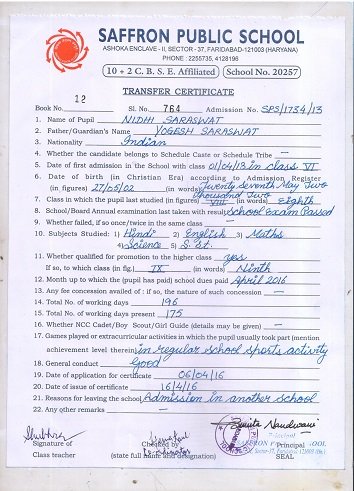 SAFFRON PUBLIC SCHOOL
ASHOKA ENCLAVE - II, SECTOR - 37, FARIDABAD-121003 (HARYANA)
PHONE : 2255735, 4128196
10 + 2 C. B. S. E. Affiliated School No. 20257
TRANSFER CERTIFICATE
Book No. 12 Sl. No. 764 Admission No. SPS/1734/13
1. Name of Pupil NIDHI SARASWAT
2. Father/Guardian's Name YOGESH SARASWAT
3. Nationality Indian
4. Whether the candidate belongs to Schedule Caste or Schedule Tribe —
5. Date of first admission in the School with Class 01/04/13 in class VI
6. Date of birth (in Christian Era) according to Admission Register
(in figures) 27/05/02 (in words) Twenty Seventh May Two thousand Two
7. Class in which the pupil last studied (in figures) VIII (in words) eighth
8. School/Board Annual examination last taken with result School Exam Passed
9. Whether failed, if so once/twice in the same class —
10. Subjects Studied: 1) Hindi 2) English 3) Maths
4) Science 5) S. St.
11. Whether qualified for promotion to the higher class yes
If so, to which class (in fig.) IX (in words) Ninth
12. Month up to which the (pupil has paid) school dues paid April 2016
13. Any fee concession availed of : if so, the nature of such concession —
14. Total No. of working days 196
15. Total No. of working days present 175
16. Whether NCC Cadet/Boy Scout/Girl Guide (details may be given) —
17. Games played or extracurricular activities in which the pupil usually took part (mention
achievement level therein) in regular school sports activity
18. General conduct Good
19. Date of application for certificate 06/04/16
20. Date of issue of certificate 16/4/16
21. Reasons for leaving the school Admission in another school
22. Any other remarks —
Signature of
Class teacher
Checked by
(state full name and designation)
Principal
SEAL